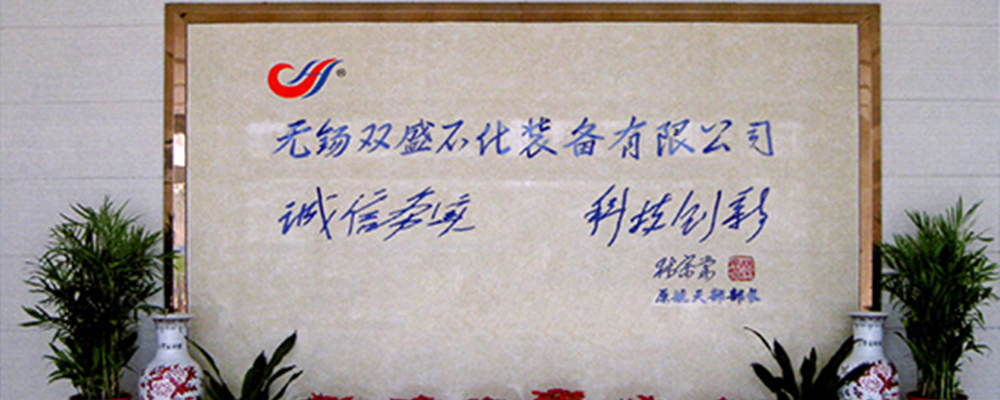 ®
无锡双盛石化装备有限公司
诚信务实 科技创新
原航天部部长